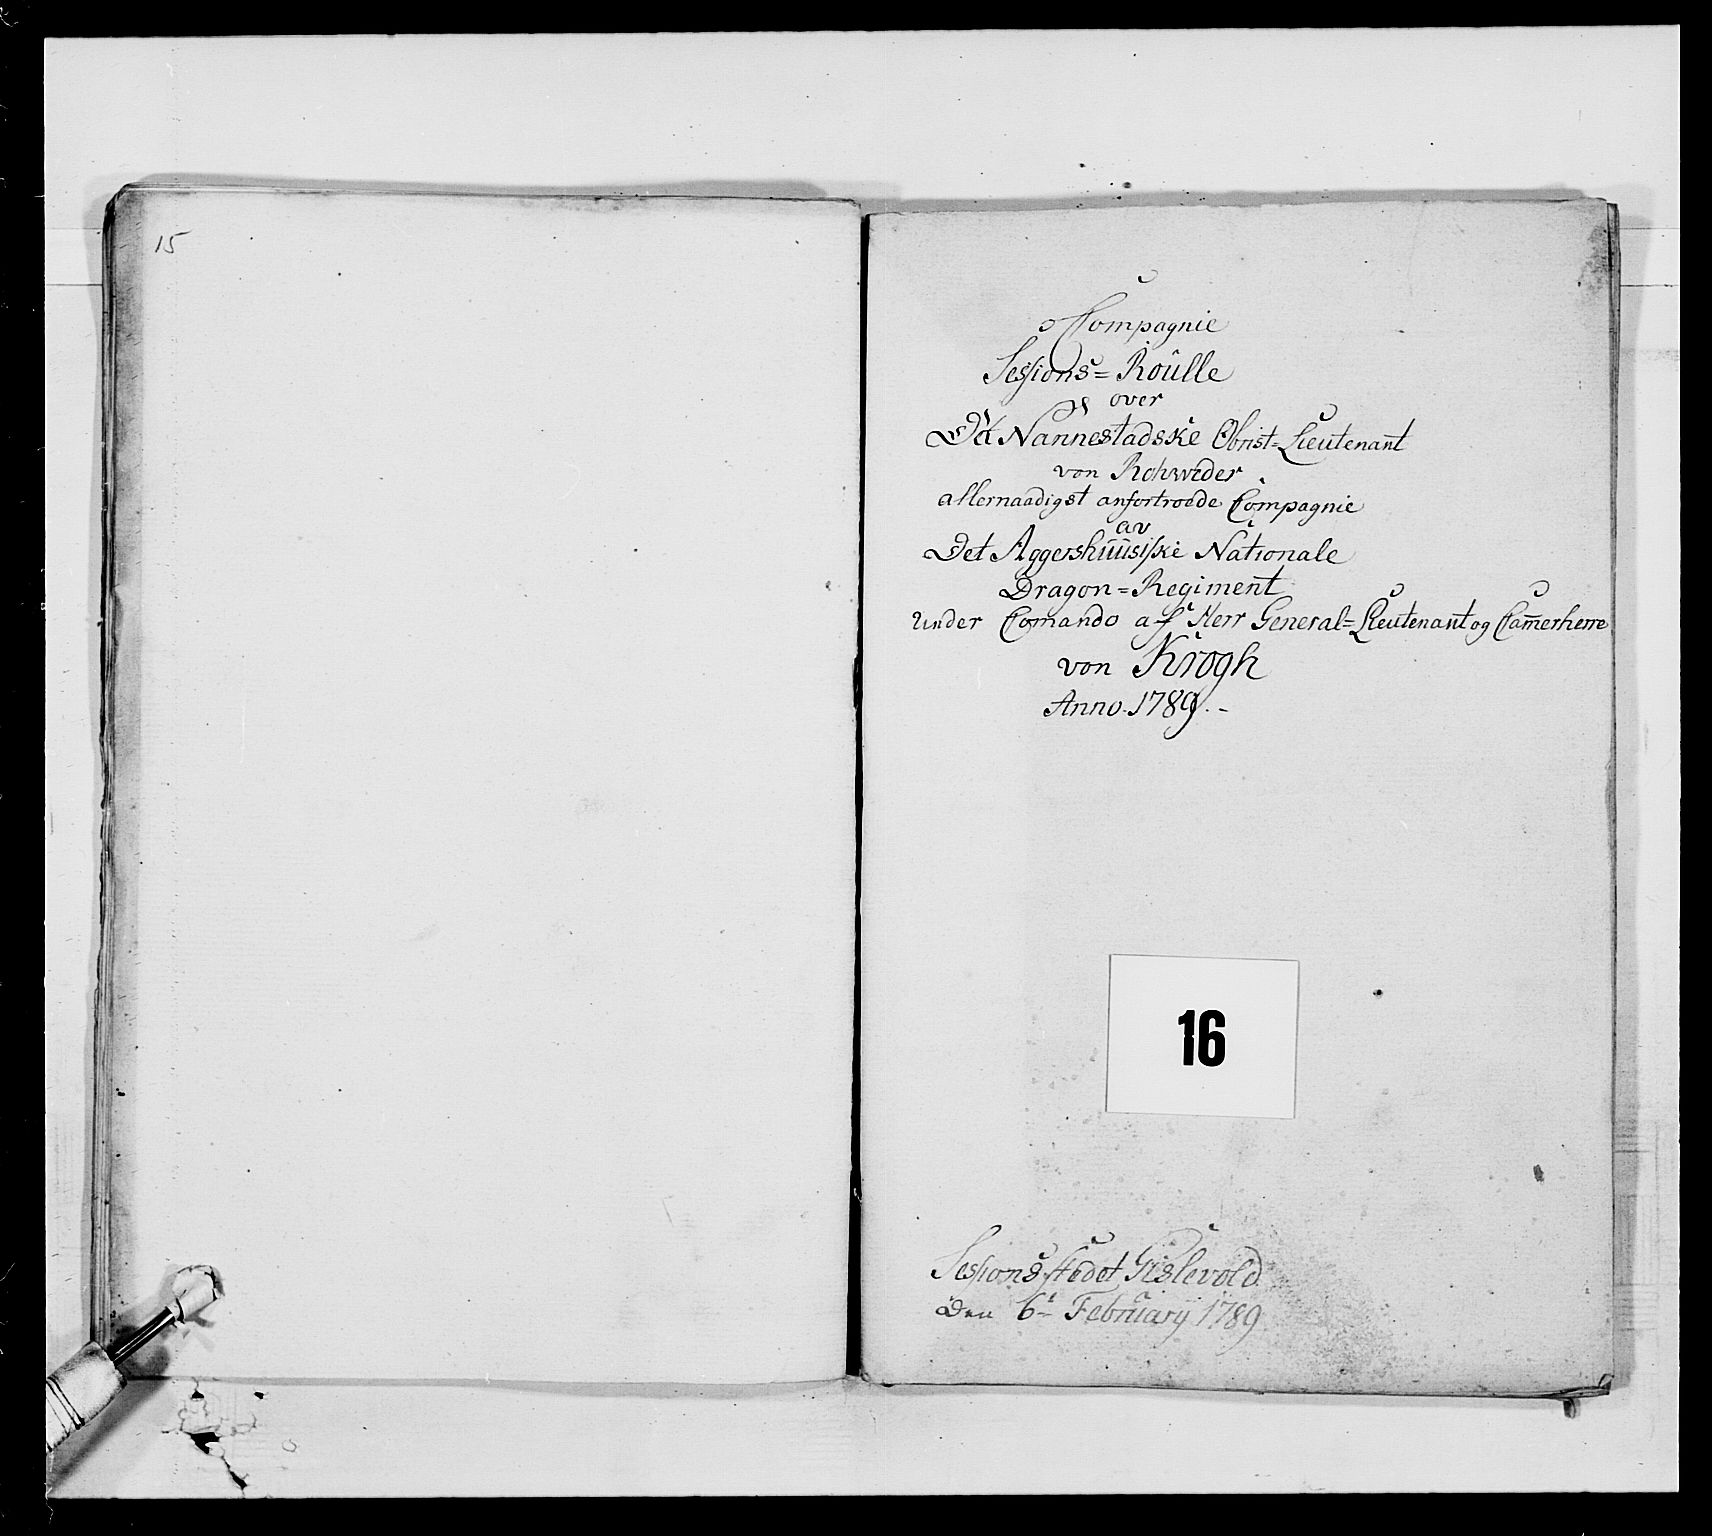 15
Compagnie
Sessions=Roulle
over
Det Nannestadske Obrist=Lieutenant
von Rohweder
allernaadigst anfortroede Compagnie
av
Det Aggershuusiske Nationale
Dragon=Regiment
under Comando af Herr General=Lieutenant og Cam̄erherre
von Krogh
Anno. 1789.-
16
Sessions stedet Gislevold
Den 6t February 1789